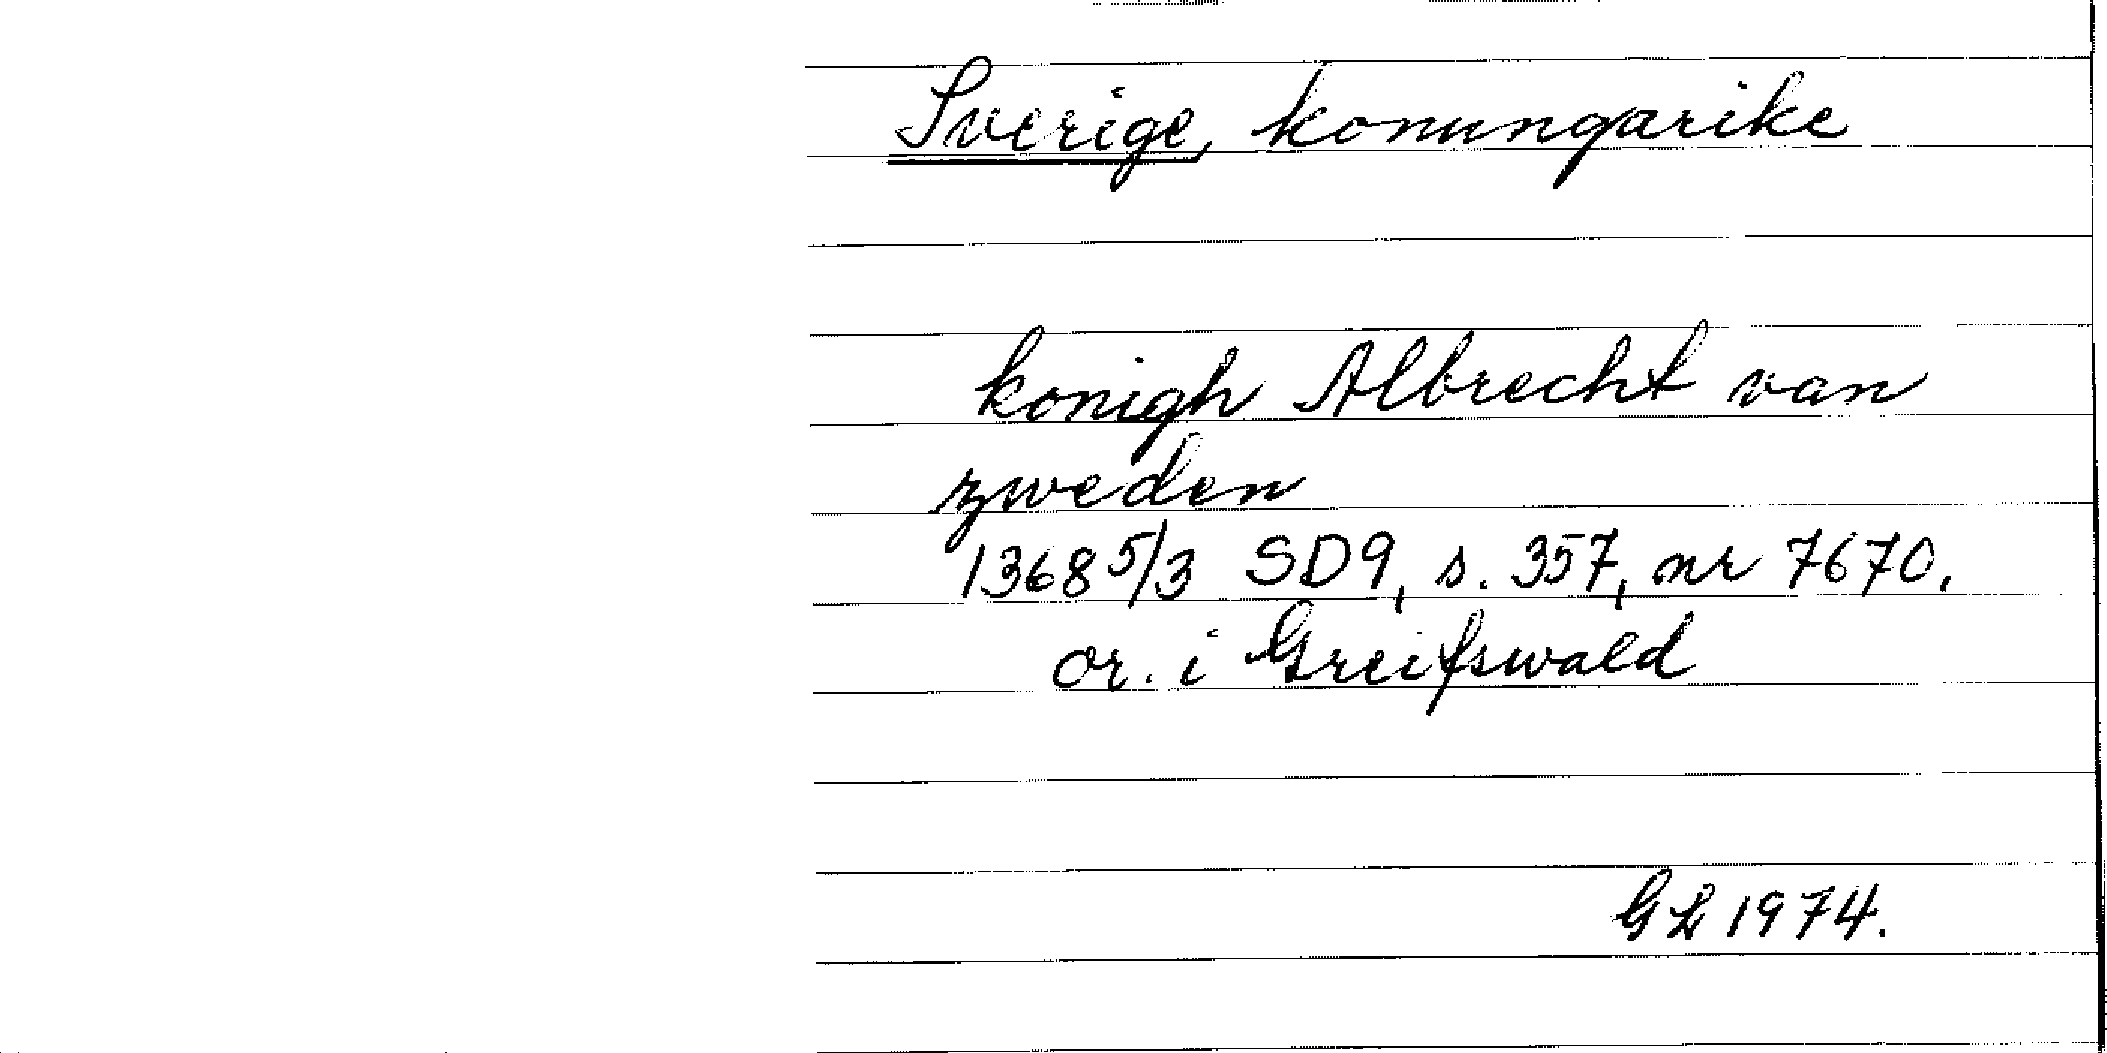 Sverige, konungarike
konigh Albrecht van
zweden
1368 5/3 SD9, s. 357, nr 7670.
or. i Greifswald
GL 1974.